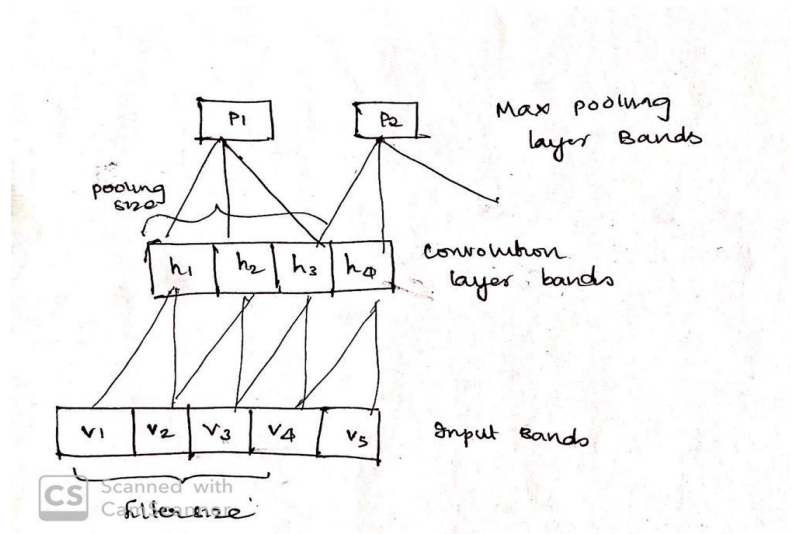 P1
P2
Max pooling
layer Bands
pooling
size
h1
h2
h3
h4
Convolution
layer bands
V1
V2
V3
V4
V5
Input Bands
CS
Scanned with
CamScanner
filter size